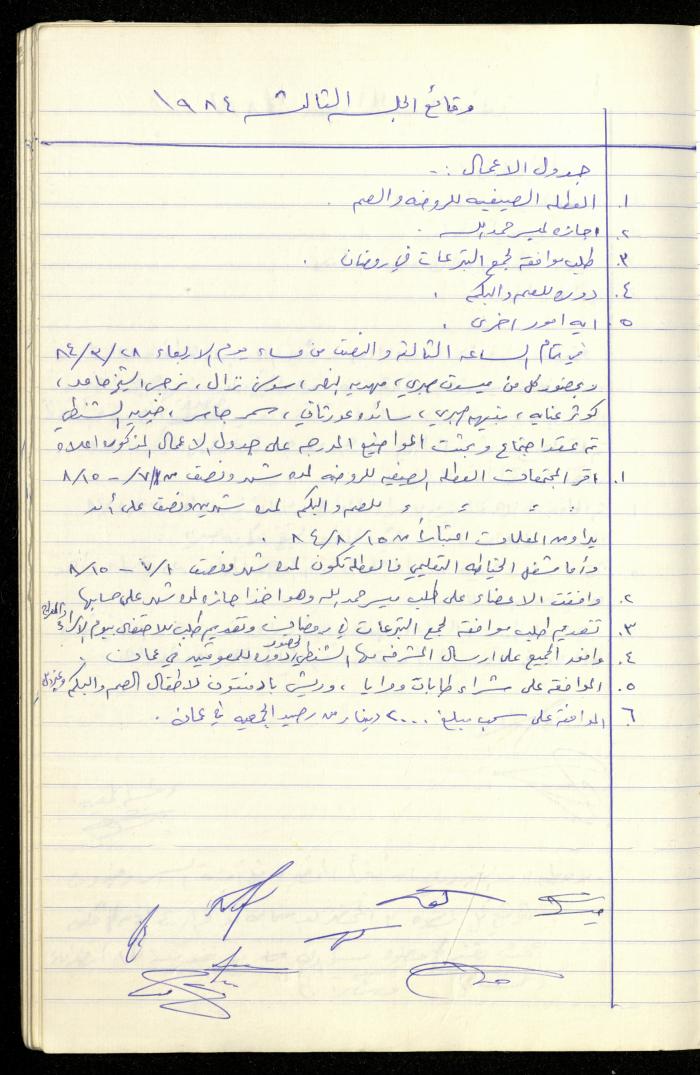 وقائع الجلسه الثالثه ١٩٨٤
جدول الاعمال :-
١. العطله الصيفيه للروضه والصم .
٢. اجازه لميسر حمد الله .
٣. طلب موافقة لجمع التبرعات في رمضان .
٤. دوره للصم والبكم .
٥. ايه امور اخرى .
في تمام الساعه الثالثة والنصف من مساء يوم الاربعاء ٨٤/٣/٢٨
وبحضور كل من ميسون صبري، مهديه النصر، سوسن نزال، نرجس الشيخ حامد،
كوثر عنايه، صبري، سائده عورتاني، سمر جاسر، خيريه الشنطي
تم عقد اجتماع وبحثت المواضيع المدرجه على جدول الاعمال المذكوره اعلاه
١. اقر المجتمعات العطله الصيفيه للروضه لمده شهر ونصف من ٧/١ - ٨/١٥
للصم والبكم لمده شهرين ونصف على أن
يداومن المعلمات اعتباراً من ٨٤/٨/١٥ .
وأما مشغل الخياطه التعليمي فالعطله تكون لمده شهر ونصف ٧/١ - ٨/١٥
٢. وافقت الاعضاء على طلب ميسر حمد الله وهو اخذ اجازه لمده شهر على حسابها
٣. تقديم طلب موافقة لجمع التبرعات في رمضان وتقديم طلب للاحتفال بيوم
٤. وافق الجميع على ارسال المشرفه مها الشنطي لحضور دوره للمعوقين في عمان .
٥. الموافقه على شراء طابات ومرايا ، وريش بادمنتون لاطفال الصم والبكم وغير ذلك
٦. الموافقة على سحب مبلغ ٢٠٠٠ دينار من رصيد الجمعيه في عمان .